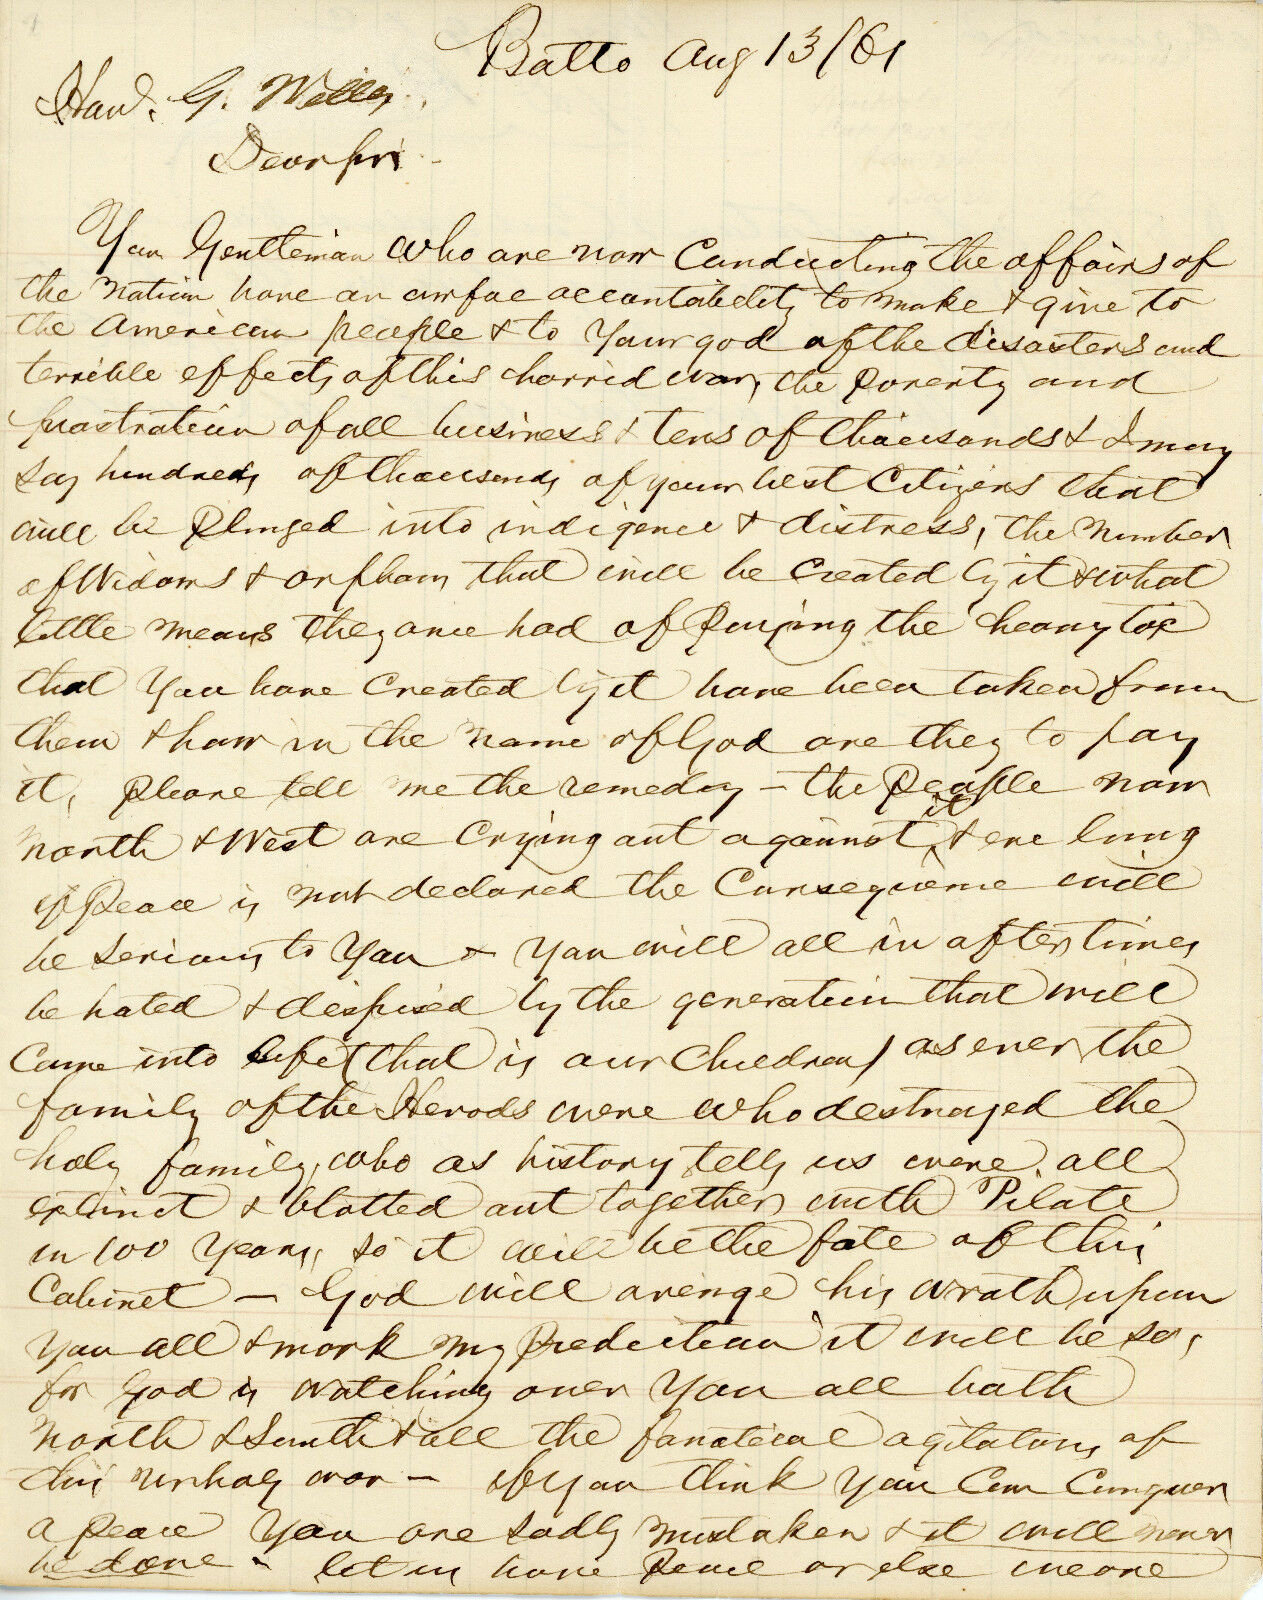 Balto Aug 13/61
Hon. G. Welles
Dear Sir
You Gentleman who are now Conducting the affairs of
the nation have an awfue accountability to make & give to
the American people & to Your god of the disasters and
terrible effects of this horrid war, the Poverty and
prostration of all business & tens of thousands & I may
say hundreds of thousands of your best Citizens that
will be Plunged into indigence & distress, the number
of Widows & orphans that will be Created by it & what
little means they once had of Paying the heavy tax
that You have Created by it have been taken from
them & how in the name of God are they to pay
it, Please tell me the remedy – the People now
North & West are Crying out against it & ere long
if Peace is not declared the Consequence will
be serious to You & You will all in after times
be hated & despised by the generation that will
Come into life (that is our Children) as ever the
family of the Herods were who destroyed the
holy family, who as history tells us were all
extinct & blotted out together with Pilate
in 100 Years, so it will be the fate of this
Cabinet – God will avenge his wrath upon
You all & mark my Prediction it will be so,
for God is watching over You all both
North & South & all the fanatical agitators of
this unholy war – If You think You Can Conquer
a Peace You are sadly mistaken & it will never
be done – let us have Peace or else we are